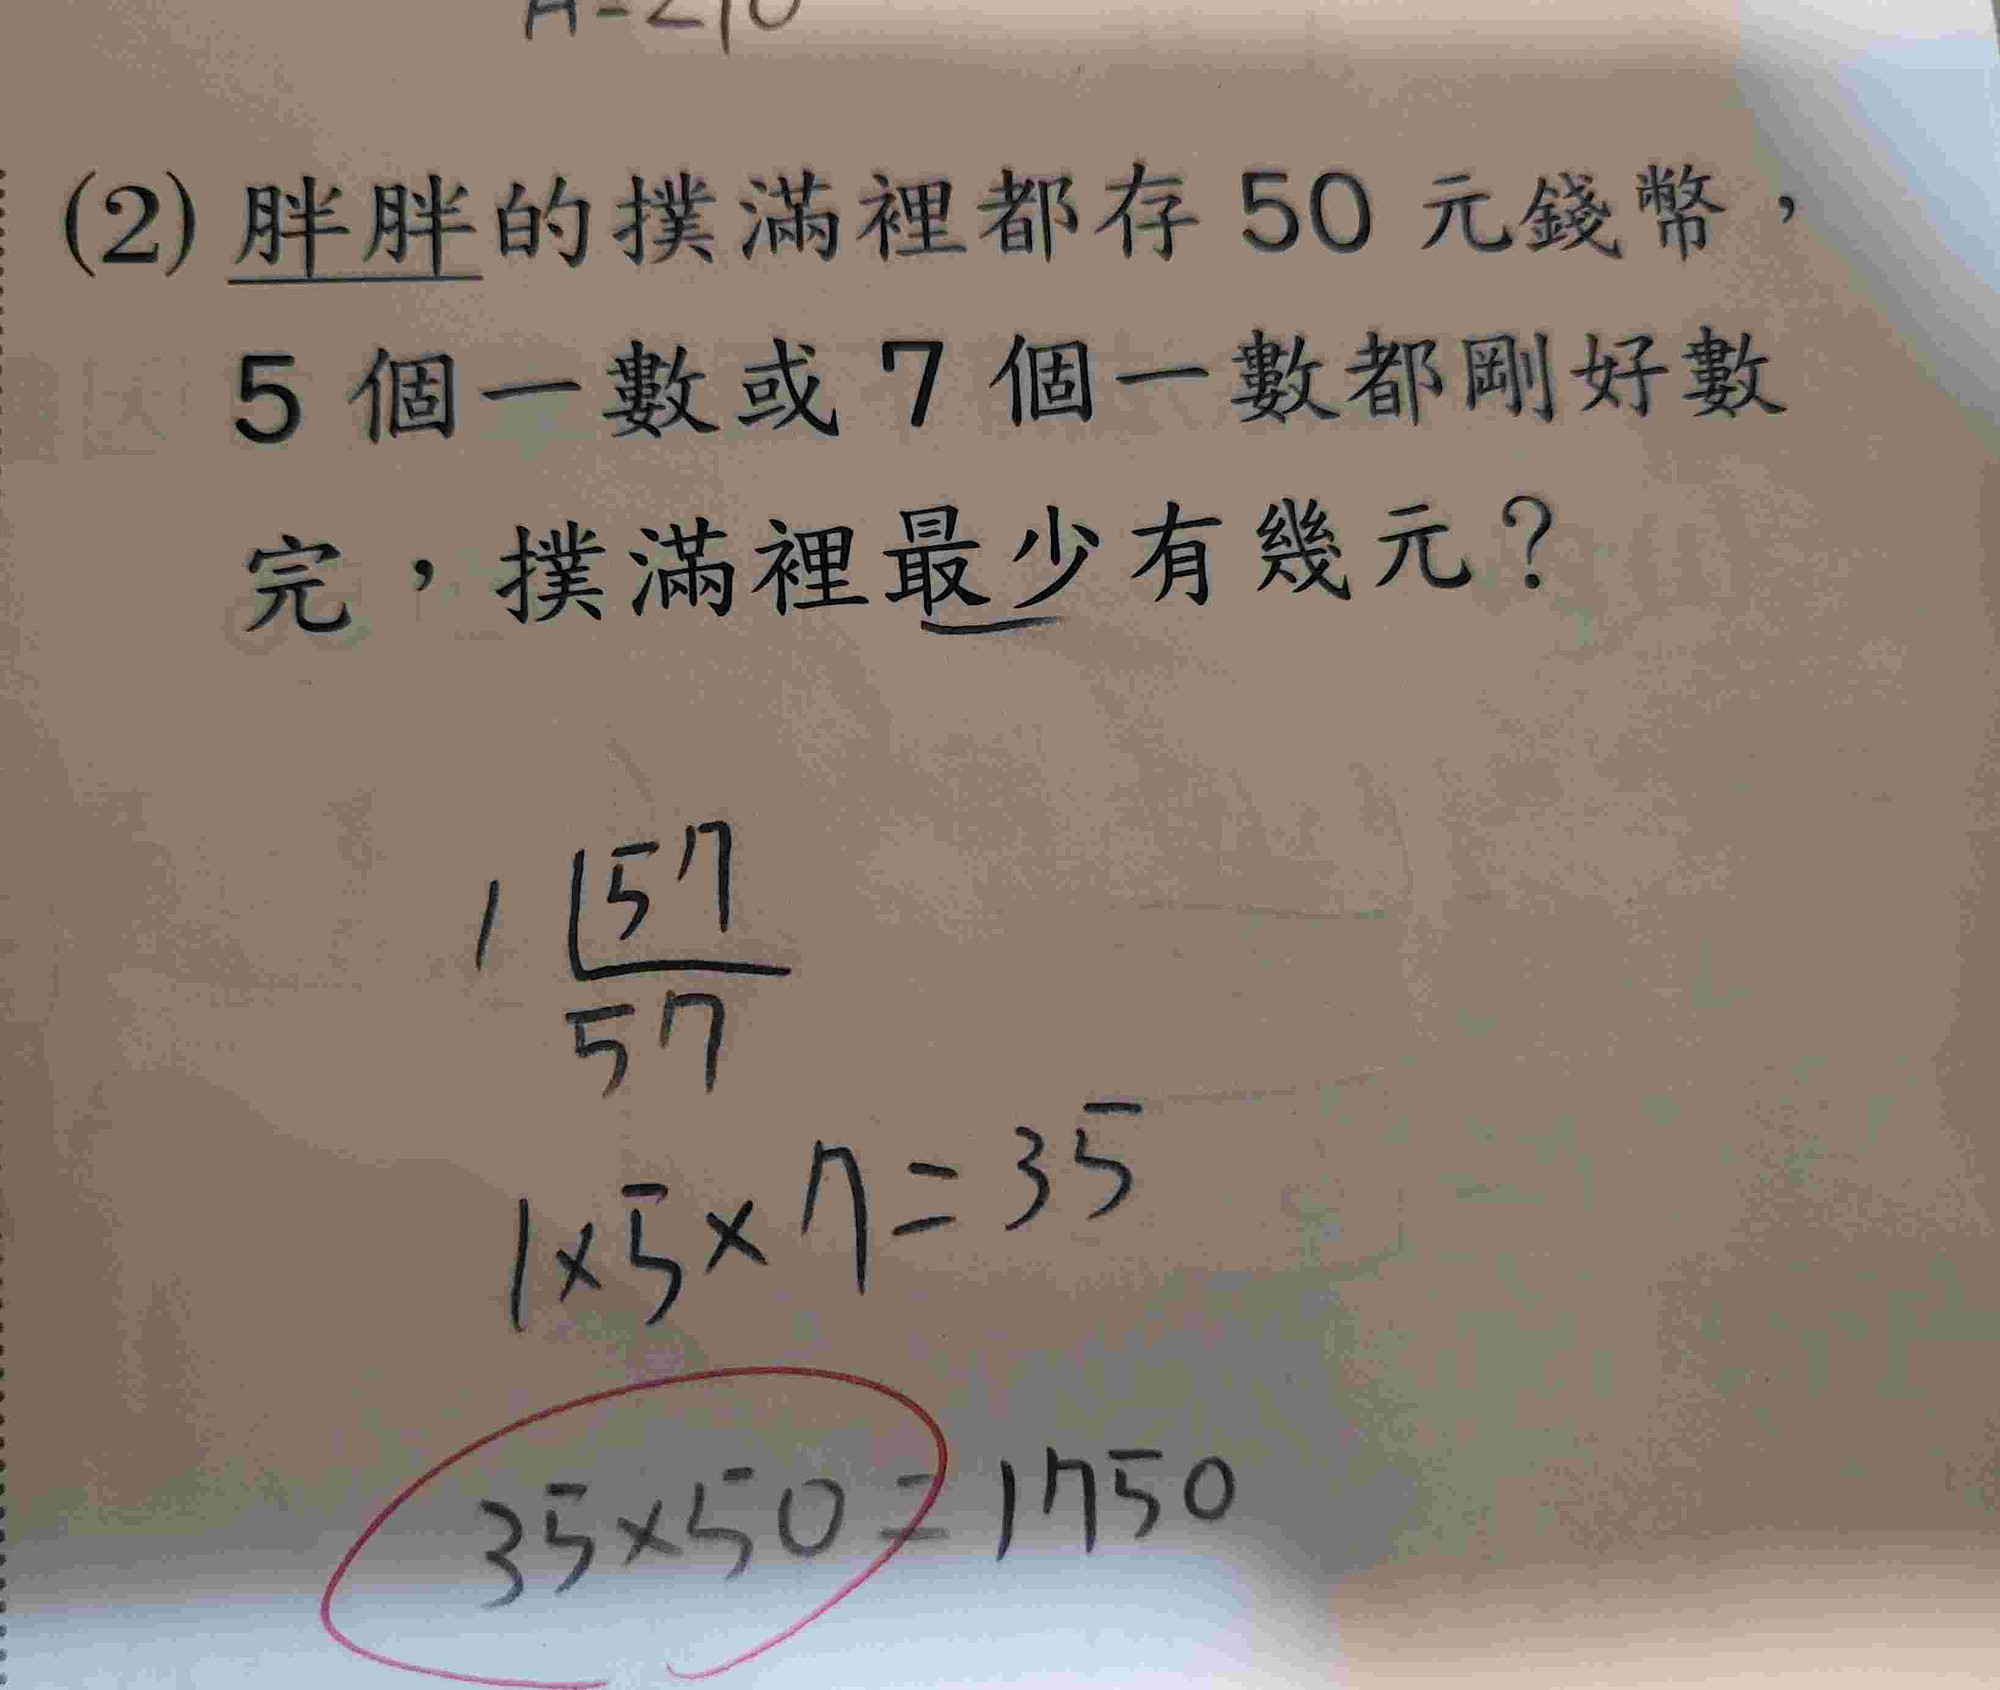 (2) 胖胖的撲滿裡都存 50 元錢幣，
5 個一數或 7 個一數都剛好數
完，撲滿裡最少有幾元？
1 5 7
5 7
1×5×7=35
35×50=1750